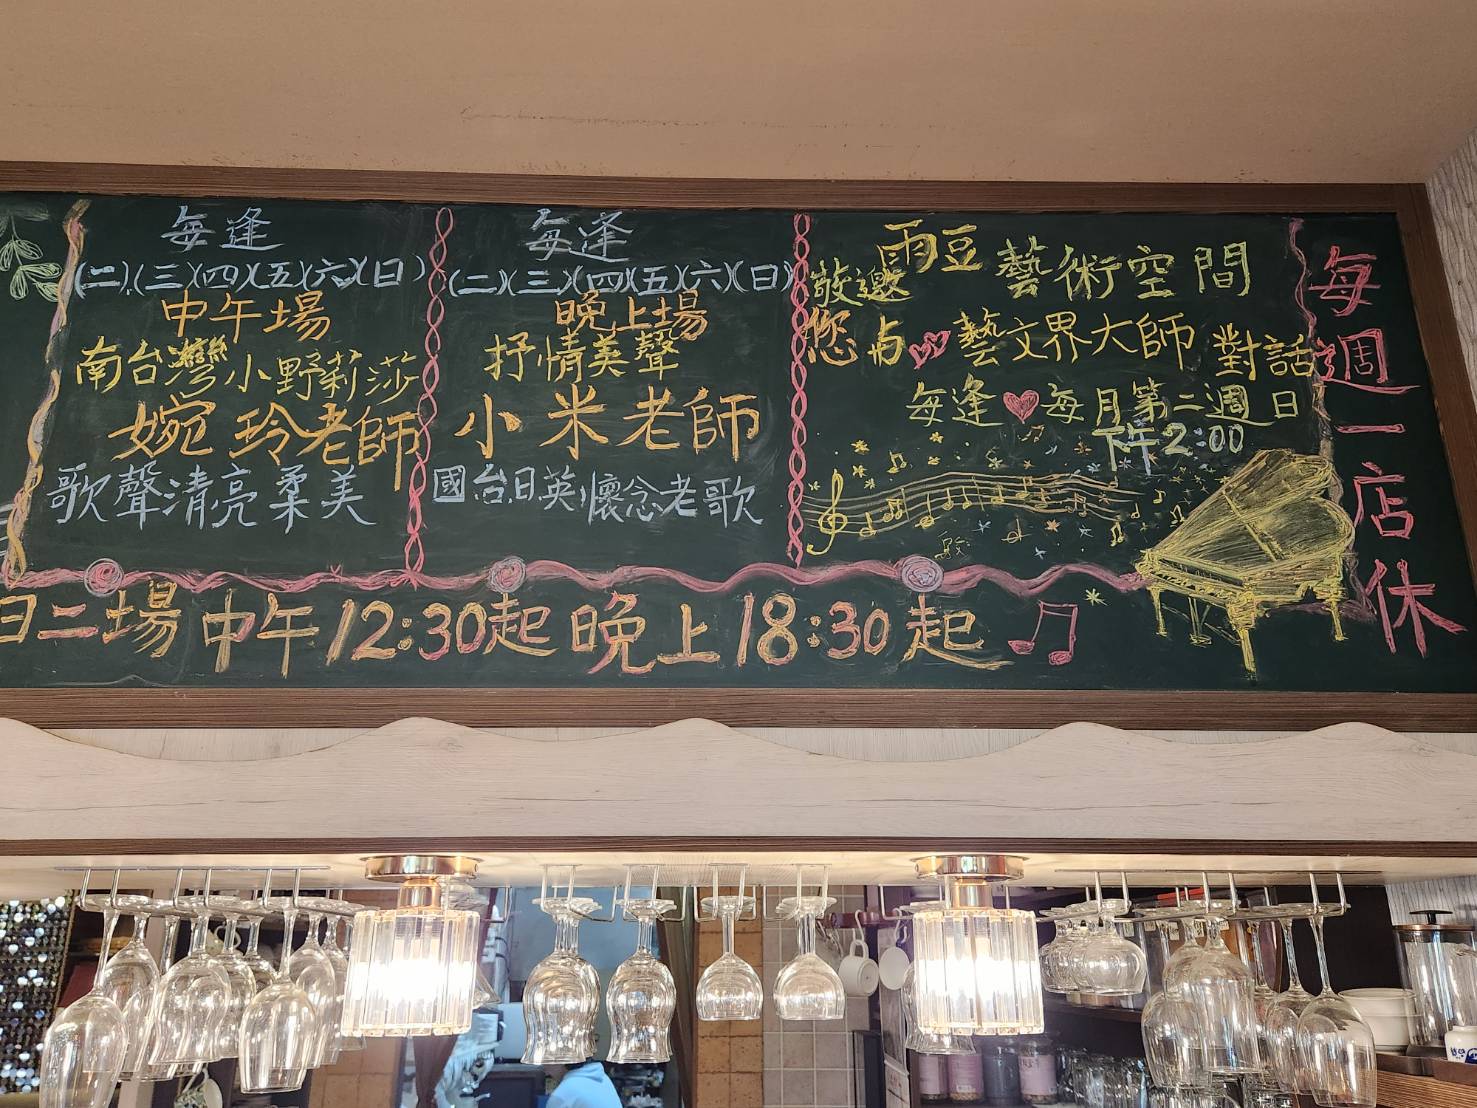 每逢
(二)(三)(四)(五)(六)(日)
中午場
南台灣小野莉莎
婉玲老師
歌聲清亮柔美
每逢
(二)(三)(四)(五)(六)(日)
晚上場
抒情美聲
小米老師
國台日英懷念老歌
雨豆藝術空間
敬邀您与藝文界大師對話
每逢每月第二週日
下午2:00
每週一店休
日二場中午12:30起晚上18:30起